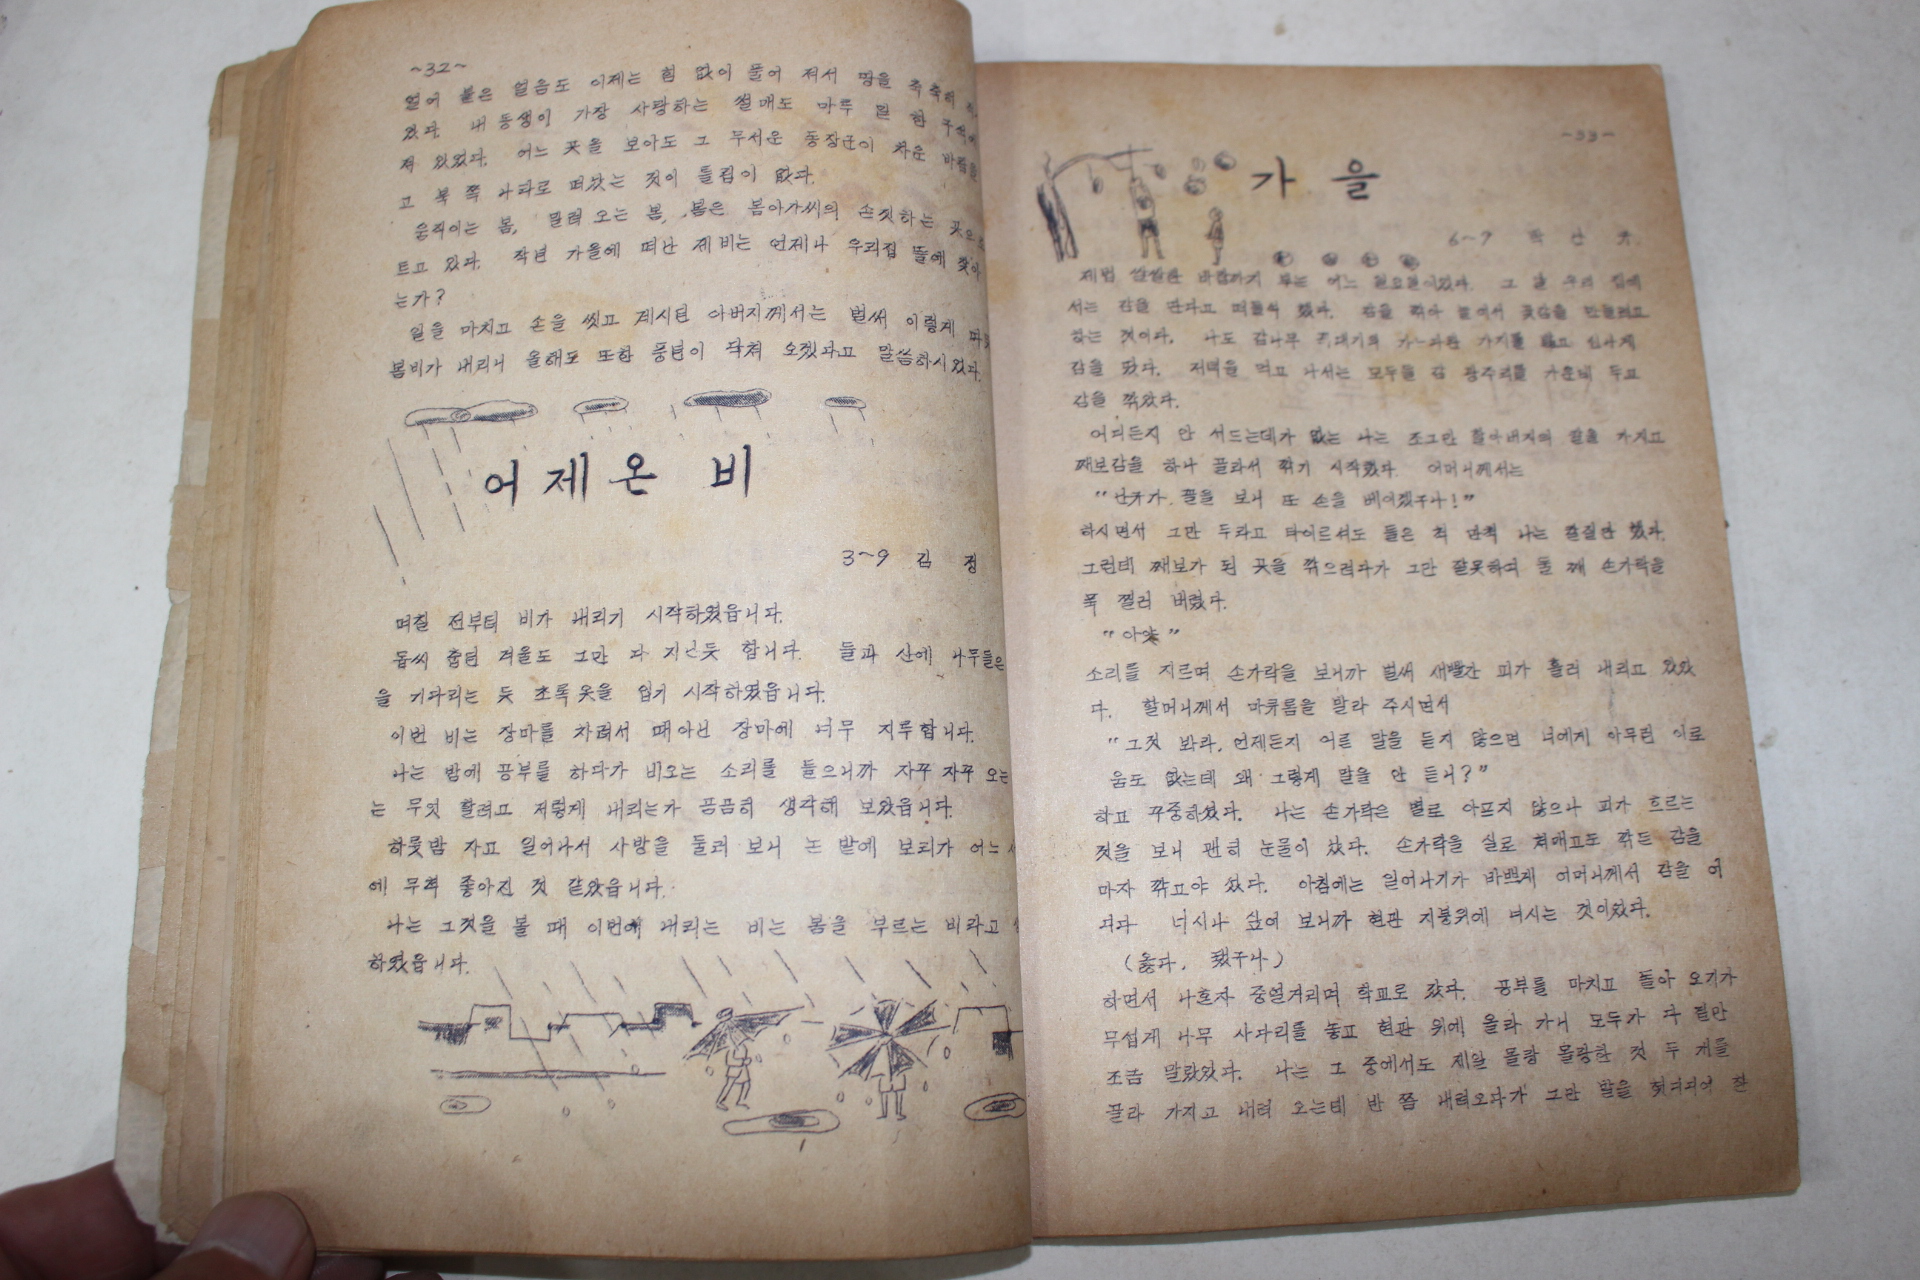 ~32~
얼어 붙은 얼음도 이제는 힘 없이 풀어 져서 땅을 축축해
있다. 내 동생이 가장 사랑하는 썰매도 마루 밑 한 구석에
져 있었다. 어느 곳을 보아도 그 무서운 동장군이 차운 바람을
고 북 쪽 나라로 떠났는 것이 틀림이 없다.
움직이는 봄, 밀려 오는 봄, 봄은 봄아가씨의 손짓하는 곳으로
트고 있다. 작년 가을에 떠난 제비는 언제나 우리집 뜰에 찾아
는가?
일을 마치고 손을 씻고 계시던 아버지께서는 벌써 이렇게
봄비가 내리니 올해도 또한 풍년이 닥쳐 오겠다고 말씀하시었다.
어제 온 비
3~9 김 정
며칠 전부터 비가 내리기 시작하였읍니다.
몹씨 춥던 겨울도 그만 다 지난듯 합니다. 들과 산에 나무들은
을 기다리는 듯 초록 옷을 입기 시작하였읍니다.
이번 비는 장마를 차려서 때아닌 장마에 너무 지루합니다.
나는 밤에 공부를 하다가 비오는 소리를 들으니까 자꾸 자꾸 오는
는 무엇 할려고 저렇게 내리는가 곰곰히 생각해 보았읍니다.
하룻밤 자고 일어나서 사방을 둘러 보니 논 밭에 보리가 어느
에 무척 좋아진 것 같았읍니다.
나는 그것을 볼 때 이번에 내리는 비는 봄을 부르는 비라고
하였읍니다.
~33~
가 을
6~9
제법 쌀쌀한 바람까지 부는 어느 일요일이었다. 그 날 우리 집에
서는 감을 딴다고 떠들썩 했다. 감을 깎아 말려서 곶감을 만들려고
하는 것이다. 나도 감나무 가느다란 가지를 타고 신나게
감을 땄다. 저녁을 먹고 나서는 모두들 감 광주리를 가운데 두고
감을 깎았다.
어디든지 안 서드는데가 없는 나는 조그만 할아버지의 칼을 가지고
째보감을 하나 골라서 깎기 시작했다. 어머니께서는
"난구가 꼴을 보니 또 손을 베이겠구나!"
하시면서 그만 두라고 타이르셔도 들은 척 만척 나는 칼질만 했다.
그런데 째보가 된 곳을 깎으려다가 그만 잘못하여 둘 째 손가락을
폭 찔러 버렸다.
"아얏"
소리를 지르며 손가락을 보니까 벌써 새빨간 피가 흘러 내리고 있었
다. 할머니께서 마큐롬을 발라 주시면서
"그것 봐라. 언제든지 어른 말을 듣지 않으면 너에게 아무런 이로
움도 없는데 왜 그렇게 말을 안 듣니?"
하고 꾸중하셨다. 나는 손가락은 별로 아프지 않으나 피가 흐르는
것을 보니 괜히 눈물이 났다. 손가락을 실로 쳐매고도 깎든 감을
마자 깎고야 섰다. 아침에는 일어나기가 바쁘게 어머니께서 감을 어
디다 너시나 싶어 보니까 현관 지붕위에 너시는 것이었다.
(옳다. 됐구나)
하면서 나혼자 중얼거리며 학교로 갔다. 공부를 마치고 돌아 오기가
무섭게 나무 사다리를 놓고 현관 위에 올라 가니 모두가 다 겉만
조금 말랐었다. 나는 그 중에서도 제일 몰랑 몰랑한 것 두 개를
골라 가지고 내려 오는데 반 쯤 내려오다가 그만 발을 헛디디어 한